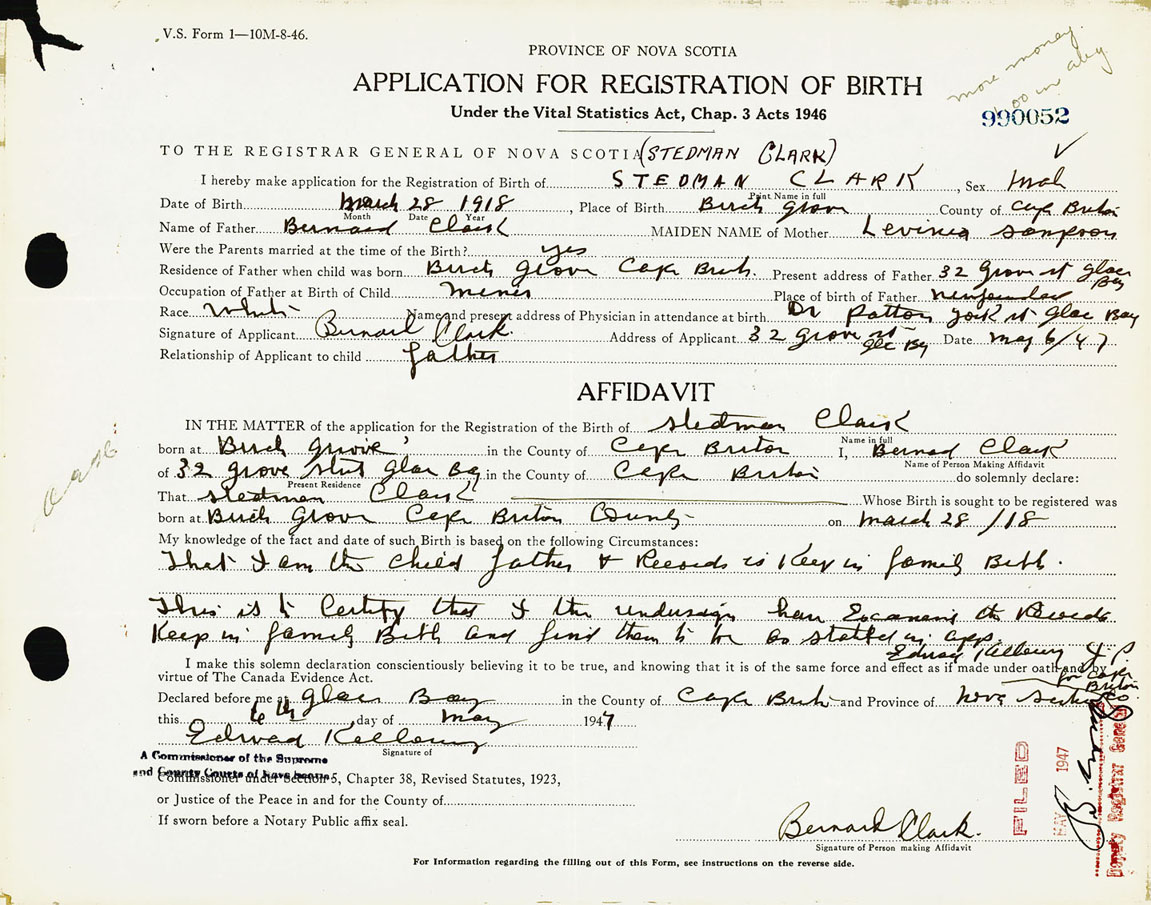 V.S. Form 1—10M-8-46.
more money
PROVINCE OF NOVA SCOTIA
APPLICATION FOR REGISTRATION OF BIRTH
Under the Vital Statistics Act, Chap. 3 Acts 1946
990052
TO THE REGISTRAR GENERAL OF NOVA SCOTIA (STEDMAN CLARK)
I hereby make application for the Registration of Birth of STEDMAN CLARK, Sex Mal
Print Name in full
Date of Birth March 28 1918, Place of Birth Birch Grove County of Cape Briton
Month Date Year
Name of Father Bernard Clark MAIDEN NAME of Mother Levinia Sampson
Were the Parents married at the time of the Birth? yes
Residence of Father when child was born Birch Grove Cape Brit. Present address of Father 32 Grove st Glace Bay
Occupation of Father at Birth of Child miner Place of birth of Father
Race White Name and present address of Physician in attendance at birth Dr Patton York st Glac Bay
Signature of Applicant Bernard Clark. Address of Applicant 32 Grove st Glc By Date May 6/47
Relationship of Applicant to child father
AFFIDAVIT
IN THE MATTER of the application for the Registration of the Birth of Stedman Clark
Name in full
born at Birch Grove in the County of Cape Briton I, Bernard Clark
Name of Person Making Affidavit
of 32 Grove Glac By in the County of Cape Briton do solemnly declare:
Present Residence
That Stedman Clark Whose Birth is sought to be registered was
born at Birch Grove Cape Briton County on March 28/18
My knowledge of the fact and date of such Birth is based on the following Circumstances:
That I am the child father & Records is Keep in family Bibb.
This is to Certify that I the undersign have the Records
Keep in family Bibb and find them to be as stated in app.
I make this solemn declaration conscientiously believing it to be true, and knowing that it is of the same force and effect as if made under oath and by
virtue of The Canada Evidence Act.
for Cape Briton Co.
Declared before me at Glace Bay in the County of Cape Brit and Province of Nova Scotia
this 6th day of May 1947
Edward
Signature of
A Commissioner of the Supreme
and County Courts of
Commissioner under Section 5, Chapter 38, Revised Statutes, 1923,
or Justice of the Peace in and for the County of
If sworn before a Notary Public affix seal.
FILED
MAY 1947
Deputy Registrar General
Bernard Clark.
Signature of Person making Affidavit
For Information regarding the filling out of this Form, see instructions on the reverse side.